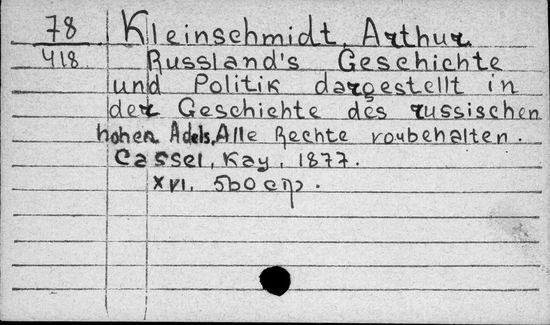 78 Kleinschmidt, Arthur
418 Russland's Geschichte
und Politik dargestellt in
der Geschichte des russischen
hohen Adels, Alle Rechte voubehalten.
Cassel, Kay, 1877.
XVI, 560 стр.